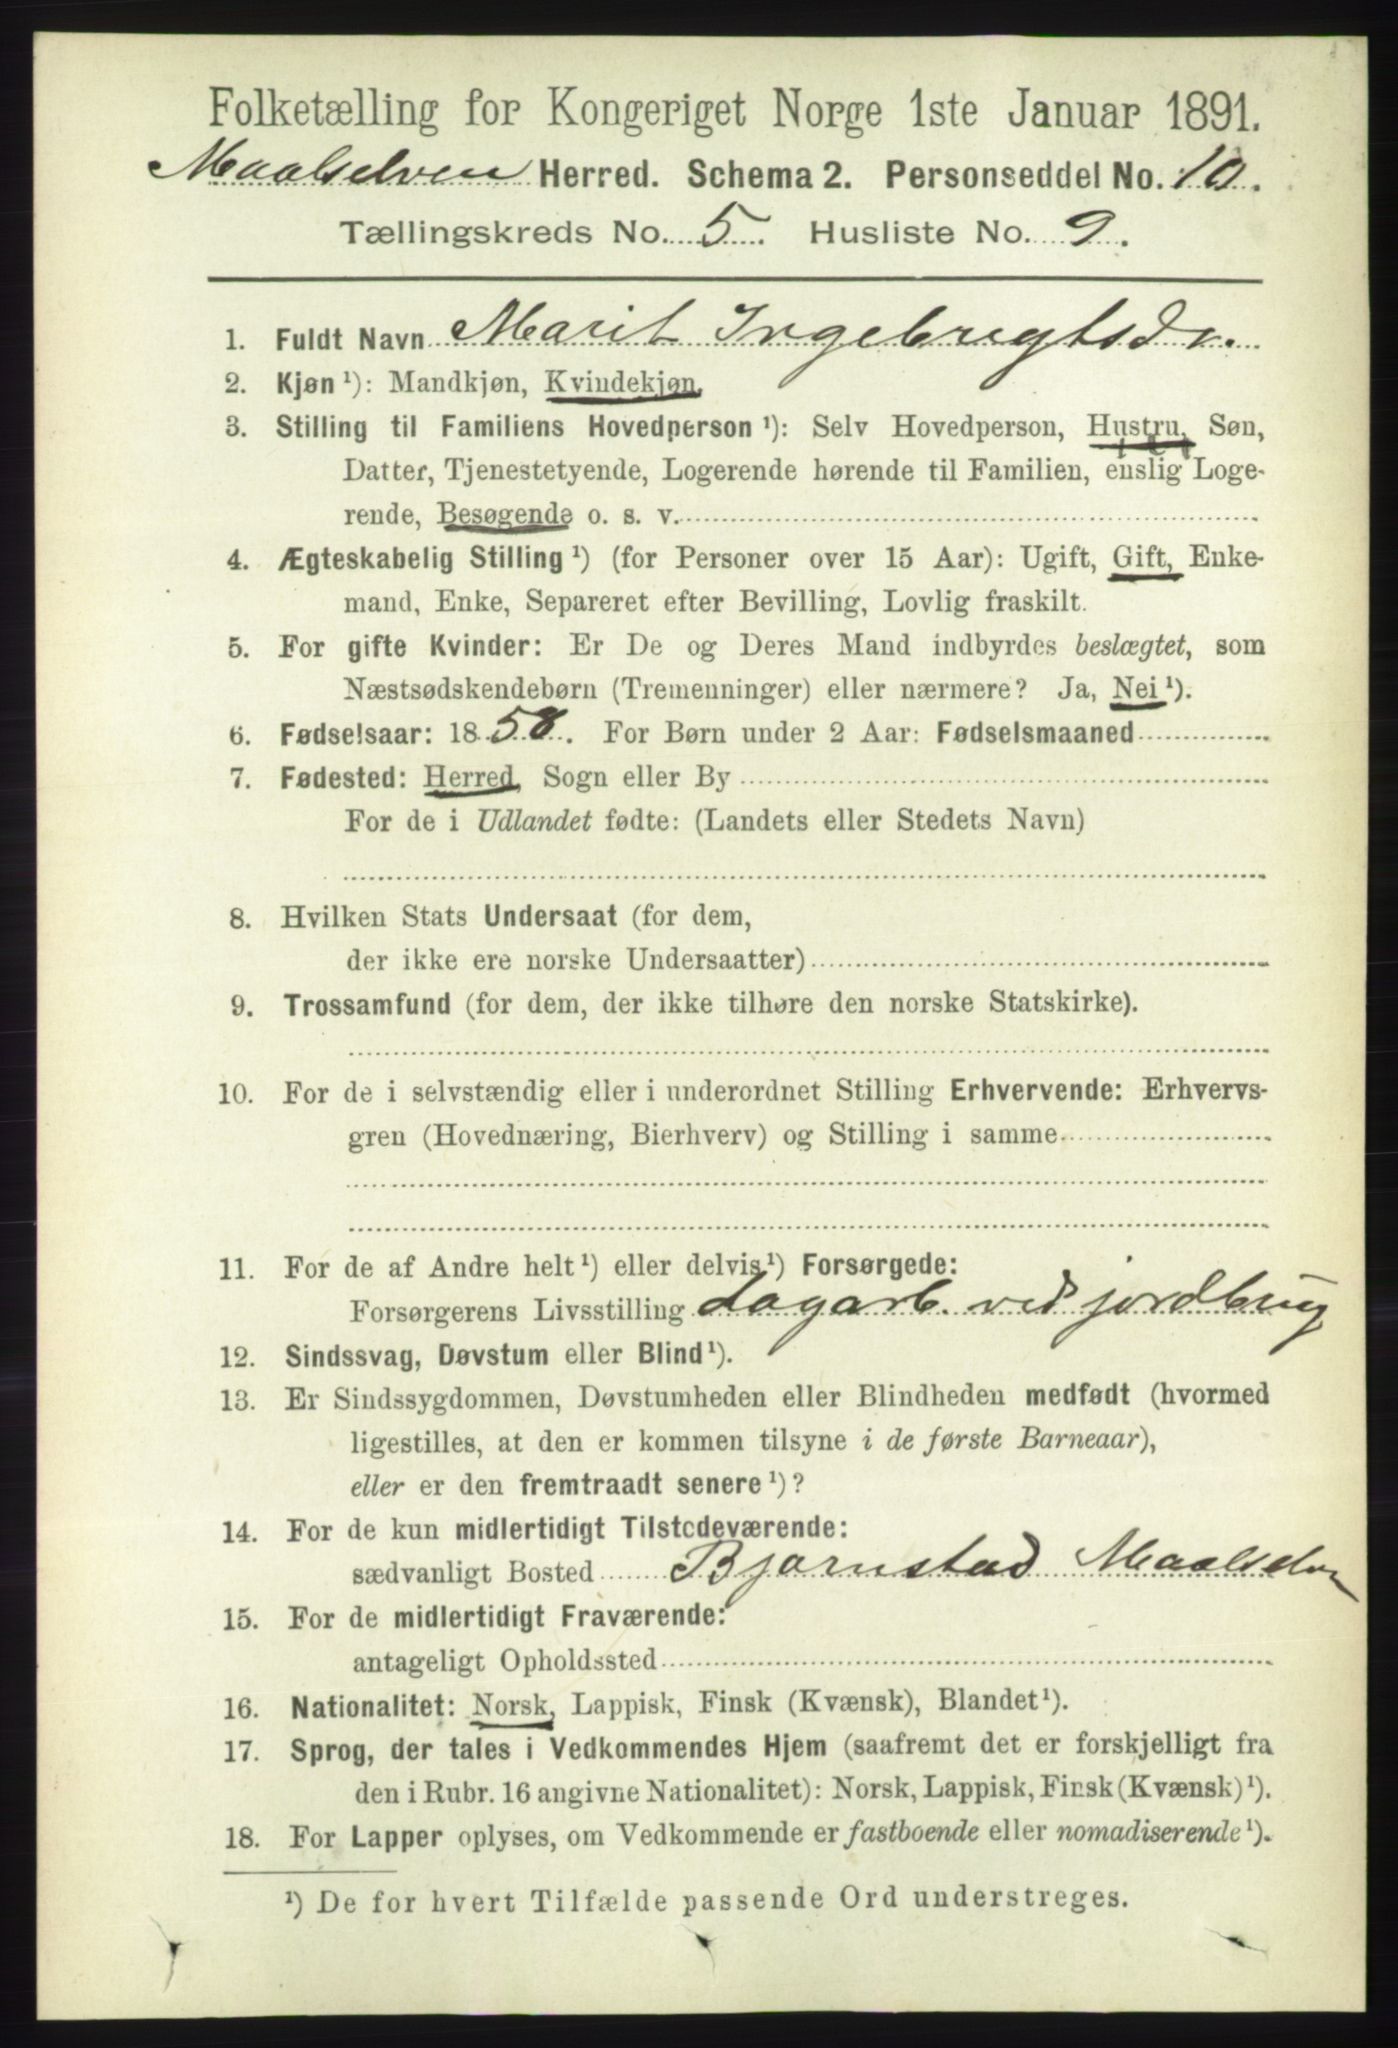 Folketælling for Kongeriget Norge 1ste Januar 1891.
Maalselven Herred. Schema 2. Personseddel No. 10.
Tællingskreds No. 5. Husliste No. 9.
1. Fuldt Navn Marit Ingebrigtsd.
2. Kjøn ¹): Mandkjøn, Kvindekjøn.
3. Stilling til Familiens Hovedperson ¹): Selv Hovedperson, Hustru, Søn,
Datter, Tjenestetyende, Logerende hørende til Familien, enslig Loge-
rende, Besøgende o. s. v.
4. Ægteskabelig Stilling ¹) (for Personer over 15 Aar): Ugift, Gift, Enke-
mand, Enke, Separeret efter Bevilling, Lovlig fraskilt.
5. For gifte Kvinder: Er De og Deres Mand indbyrdes beslægtet, som
Næstsødskendebørn (Tremenninger) eller nærmere? Ja, Nei ¹).
6. Fødselsaar: 1858. For Børn under 2 Aar: Fødselsmaaned
7. Fødested: Herred, Sogn eller By
For de i Udlandet fødte: (Landets eller Stedets Navn)
8. Hvilken Stats Undersaat (for dem,
der ikke ere norske Undersaatter)
9. Trossamfund (for dem, der ikke tilhøre den norske Statskirke).
10. For de i selvstændig eller i underordnet Stilling Erhvervende: Erhvervs-
gren (Hovednæring, Bierhverv) og Stilling i samme
11. For de af Andre helt ¹) eller delvis ¹) Forsørgede:
Forsørgerens Livsstilling Dagarb. ved jordbrug
12. Sindssvag, Døvstum eller Blind ¹).
13. Er Sindssygdommen, Døvstumheden eller Blindheden medfødt (hvormed
ligestilles, at den er kommen tilsyne i de første Barneaar),
eller er den fremtraadt senere ¹)?
14. For de kun midlertidigt Tilstedeværende:
sædvanligt Bosted Bjørnstad Maalselven
15. For de midlertidigt Fraværende:
antageligt Opholdssted
16. Nationalitet: Norsk, Lappisk, Finsk (Kvænsk), Blandet ¹).
17. Sprog, der tales i Vedkommendes Hjem (saafremt det er forskjelligt fra
den i Rubr. 16 angivne Nationalitet): Norsk, Lappisk, Finsk (Kvænsk) ¹).
18. For Lapper oplyses, om Vedkommende er fastboende eller nomadiserende ¹).
¹) De for hvert Tilfælde passende Ord understreges.